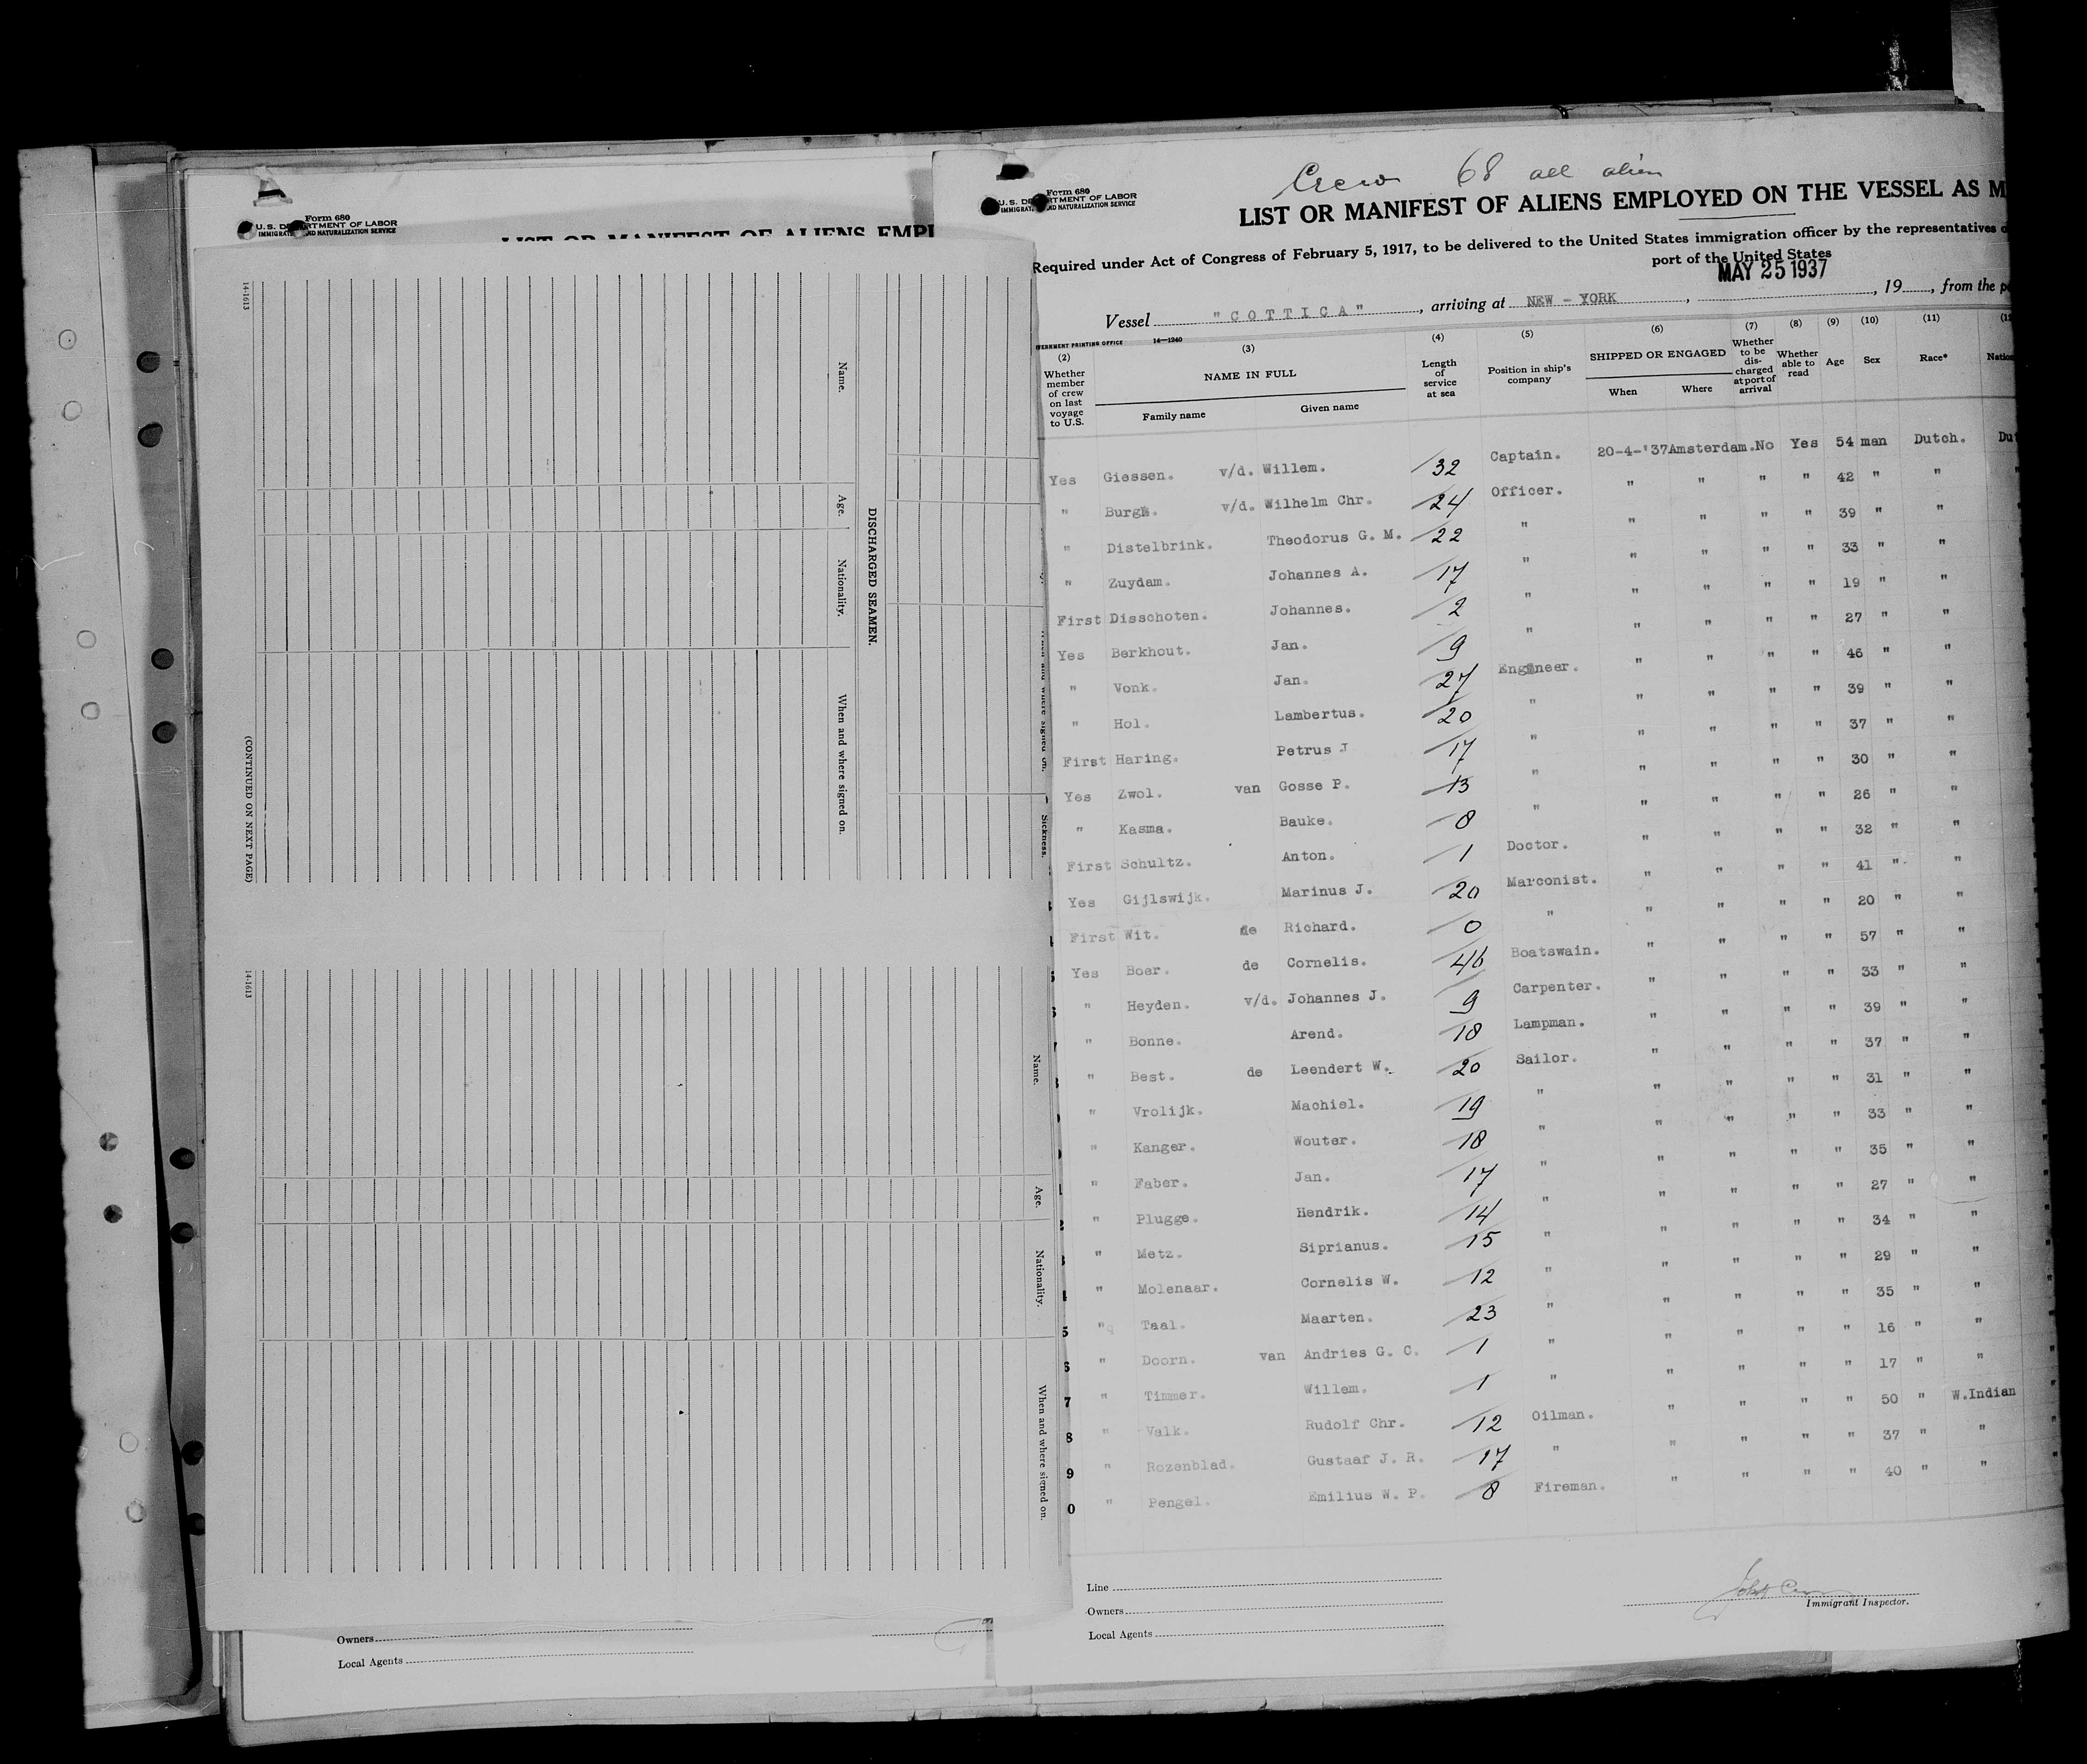 Form 680
U.S. DEPARTMENT OF LABOR
IMMIGRATION AND NATURALIZATION SERVICE
LIST OR MANIFEST OF ALIENS EMPL
14-1613
Name.
Age.
Nationality.
When and where signed on.
DISCHARGED SEAMEN.
Sickness.
(CONTINUED ON NEXT PAGE)
14-1613
Name.
Age.
Nationality.
When and where signed on.
Owners
Local Agents
Crew 68 all alien
Form 680
U.S. DEPARTMENT OF LABOR
IMMIGRATION AND NATURALIZATION SERVICE
LIST OR MANIFEST OF ALIENS EMPLOYED ON THE VESSEL AS M
Required under Act of Congress of February 5, 1917, to be delivered to the United States immigration officer by the representatives o
port of the United States
MAY 25 1937
Vessel "COTTICA", arriving at NEW-YORK, , 19 , from the po
VERNMENT PRINTING OFFICE 14—1240
(2) (3) (4) (5) (6) (7) (8) (9) (10) (11) (12
Whether member of crew on last voyage to U.S. NAME IN FULL Family name Given name Length of service at sea Position in ship's company SHIPPED OR ENGAGED When Where Whether to be discharged at port of arrival Whether able to read Age Sex Race* Nation
Yes Giessen. v/d. Willem. 32 Captain. 20-4-'37 Amsterdam. No Yes 54 man Dutch. Dut
" Burgh. v/d. Wilhelm Chr. 24 Officer. " " " " 42 " "
" Distelbrink. Theodorus G. M. 22 " " " " " 39 " "
" Zuydam. Johannes A. 17 " " " " " 33 " "
First Disschoten. Johannes. 2 " " " " " 19 " "
Yes Berkhout. Jan. 9 " " " " " 27 " "
" Vonk. Jan. 27 Engineer. " " " " 46 " "
" Hol. Lambertus. 20 " " " " " 39 " "
First Haring. Petrus J 17 " " " " " 37 " "
Yes Zwol. van Gosse P. 13 " " " " " 30 " "
" Kasma. Bauke. 8 " " " " " 26 " "
First Schultz. Anton. 1 Doctor. " " " " 32 " "
Yes Gijlswijk. Marinus J. 20 Marconist. " " " " 41 " "
First Wit. de Richard. 0 " " " " " 20 " "
Yes Boer. de Cornelis. 46 Boatswain. " " " " 57 " "
" Heyden. v/d. Johannes J. 9 Carpenter. " " " " 33 " "
" Bonne. Arend. 18 Lampman. " " " " 39 " "
" Best. de Leendert W. 20 Sailor. " " " " 37 " "
" Vrolijk. Machiel. 19 " " " " " 31 " "
" Kanger. Wouter. 18 " " " " " 33 " "
" Faber. Jan. 17 " " " " " 35 " "
" Plugge. Hendrik. 14 " " " " " 27 " "
" Metz. Siprianus. 15 " " " " " 34 " "
" Molenaar. Cornelis W. 12 " " " " " 29 " "
" Taal. Maarten. 23 " " " " " 35 " "
" Doorn. van Andries G. C. 1 " " " " " 16 " "
7 " Timmer. Willem. 1 " " " " " 17 " "
8 " Valk. Rudolf Chr. 12 Oilman. " " " " 50 " W.Indian "
9 " Rozenblad. Gustaaf J. R. 17 " " " " " 37 " "
0 " Pengel. Emilius W. P. 8 Fireman. " " " " 40 " "
Line
Owners
Local Agents
Immigrant Inspector.